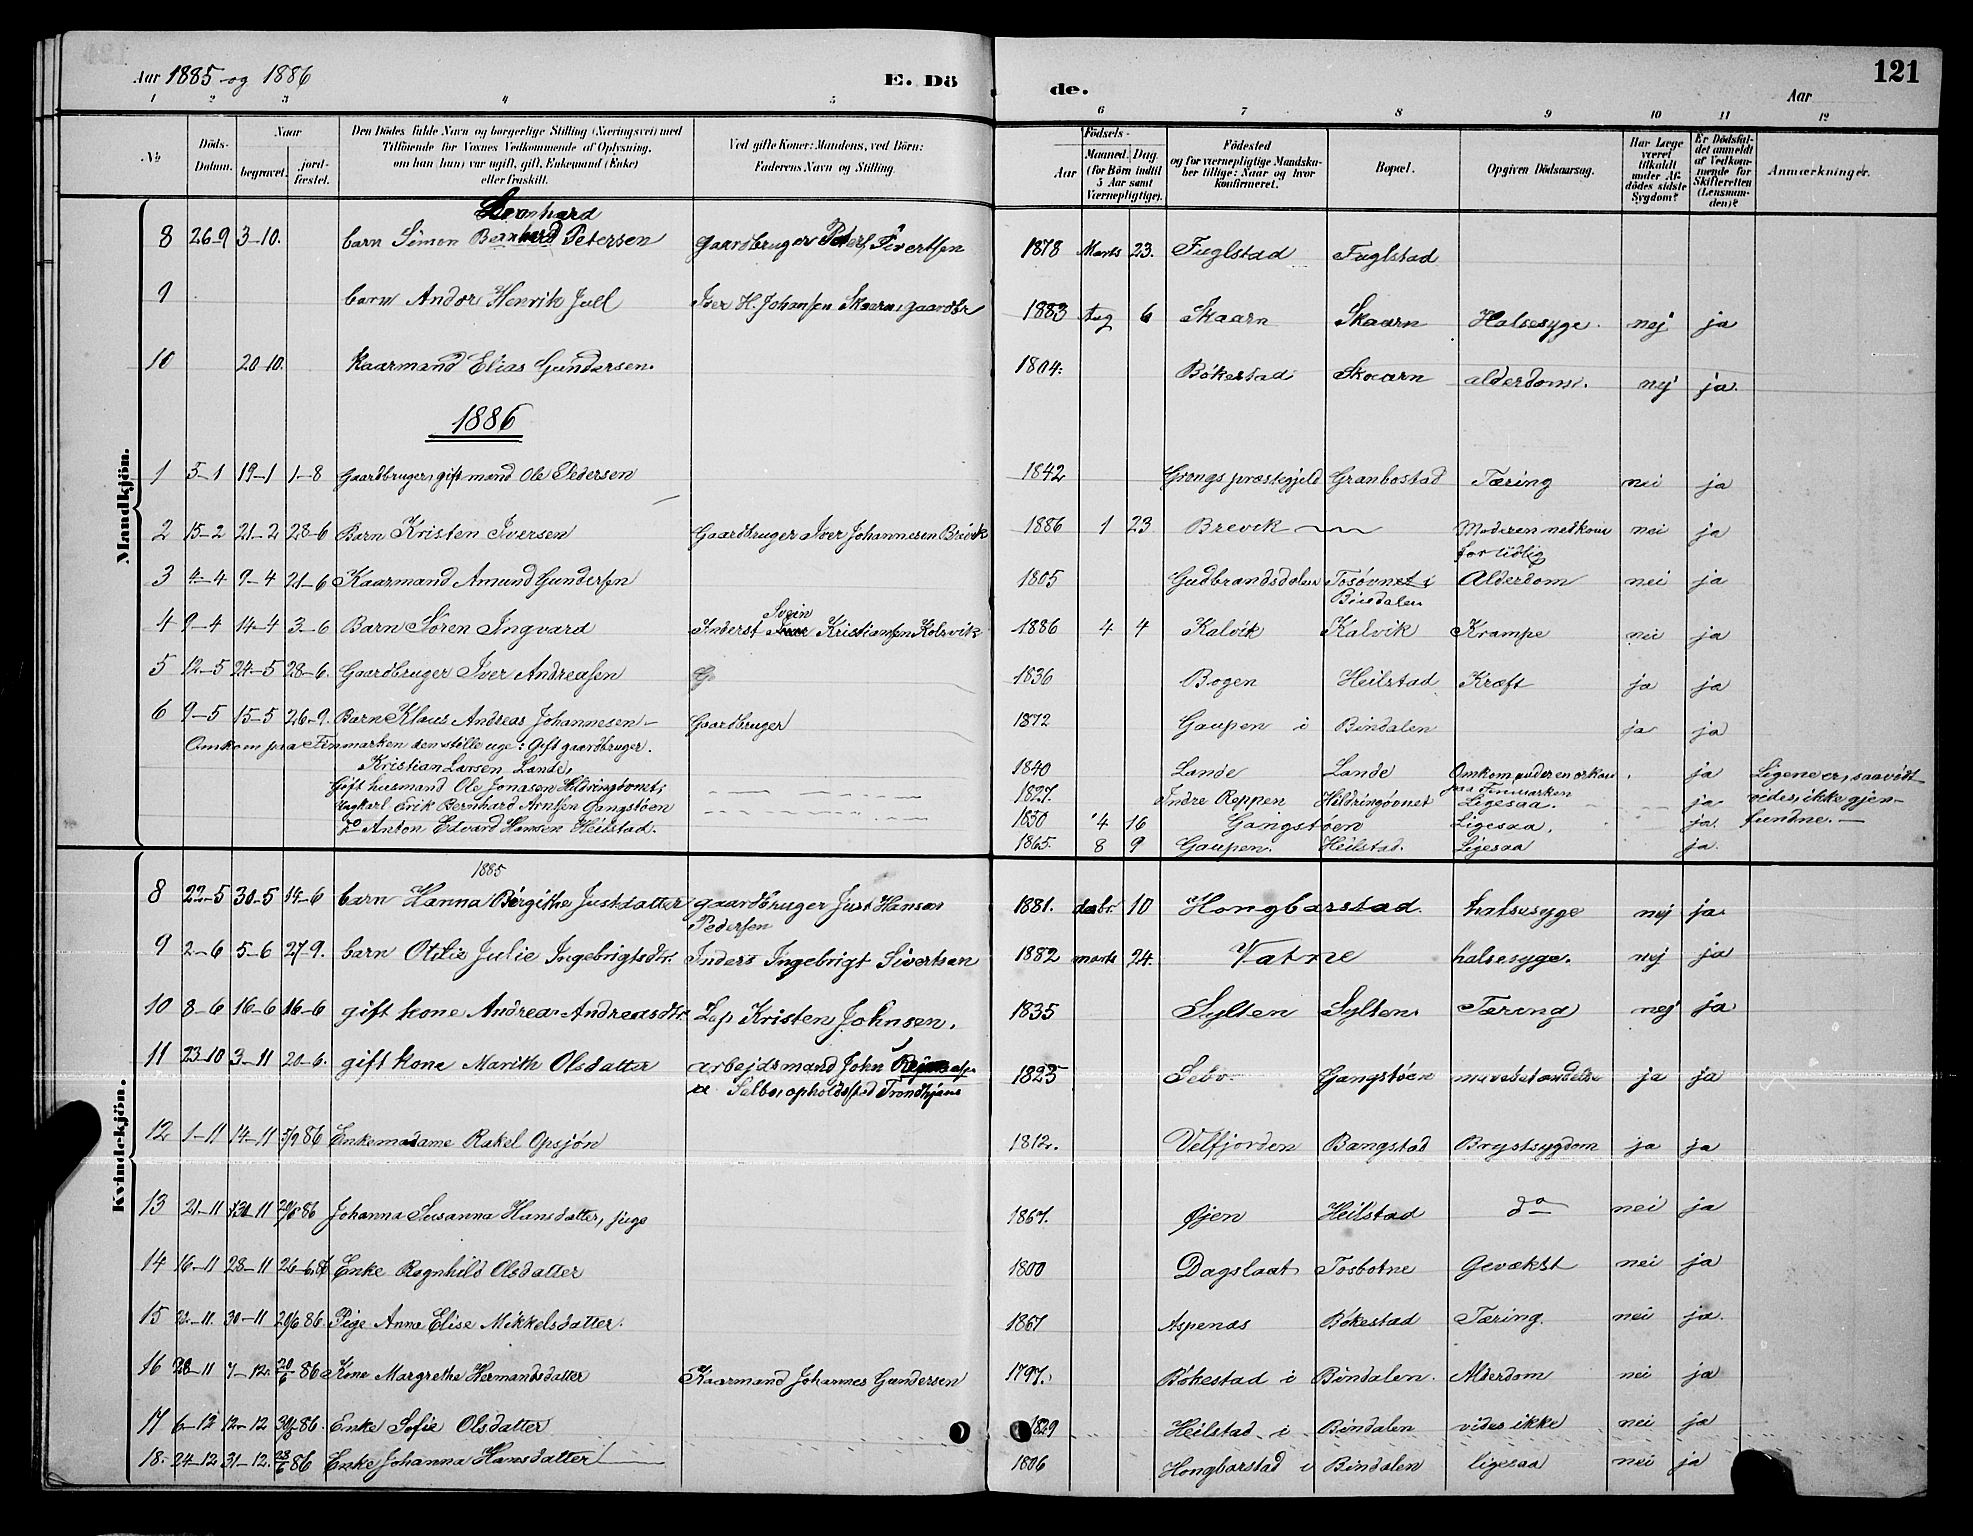 Aar 1885 og 1886
E. Döde.
121
Aar
1 2 3 4 5 6 7 8 9 10 11 12
№
Döds-Datum.
Naar
begravet.
jord-fæstet.
Den Dödes fulde Navn og borgerlige Stilling (Næringsvei) med
Tilföiende for Voxnes Vedkommende af Oplysning,
om han (hun) var ugift, gift, Enkemand (Enke)
eller fraskilt.
Ved gifte Koner: Mandens, ved Börn:
Faderens Navn og Stilling.
Födsels-
Aar
Maaned. Dag.
(for Börn indtil
5 Aar samt
Værnepligtige).
Födested
og for værnepligtige Mandska-
ber tillige: Naar og hvor
konfirmeret.
Bopæl.
Opgiven Dödsaarsag.
Har Læge
været
tilkaldt
under Af-
dödes sidste
Sygdom?
Er Dödsfal-
det anmeldt
af Vedkom-
mende for
Skifteretten
(Lensman-
den)?
Anmærkninger.
Mandkjön.
Bernhard
8 26-9 3-10. barn Simon Petersen gaardbruger Peter Sivertsen 1878 Marts 23. Fuglstad Fuglstad
9 barn Andor Henrik Juel Iver H. Johansen Skaarn, gaardbr 1883 Aug 6 Skaarn Skaarn Halsesyge. nej ja
10 20-10. Kaarmand Elias Gundersen. 1804. Bökestad Skaarn alderdoms. nej ja.
1886
1 5-1 19-1 1-8 Gaardbruger, gift mand Ole Pedersen 1842 Grongs præstegjeld Granbostad Tæring nei ja
2 15-2 21-2 28-6 Barn Kristen Iversen Gaardbruger Iver Johannesen Brevik 1886 1 23 Brevik Moderen nedkom nei ja
for tidlig
3 4-4 9-4 21-6 Kaarmand Amund Gundersen 1805 Gudbrandsdalen Tosövnet i Alderdom nei ja
Bindalen
Svein
4 9-4 14-4 3-6 Barn Sören Ingvard Inderst Kristiansen Kolsvik 1886 4 4 Kalvik Kalvik Krampe nei ja
5 12-5 24-5 28-6. Gaardbruger Iver Andreasen 1836 Bogen Heilstad Kræft ja ja
6 9-5 15-5 26-9. Barn Klaus Andreas Johannesen - Gaardbruger 1872 Gaupen i Bindalen ja ja
Omkom paa Finmarken den stille uge: Gift gaardbruger.
Kristian Larsen Lande, 1840 Lande Lande Omkom under en orkan ja Ligene er, saavidt
paa Finmarken
Gift husmand Ole Jonasen Hildringövnet; 1827. Indre Reppen Hildringövnet Ligesaa. ja vides, ikke gjen-
Ungkarl Erik Bernhard Arntsen Gangstöen 1850 4 16 Gangstöen Ligesaa. ja. fundne. -
do Anton Edvard Hansen Heilstad. 1865. 8 9 Gaupen. Heilstad. Ligesaa ja.
Kvindekjön.
1885
8 22-5 30-5 14-6 barn Hanna Birgitte Justdatter gaardbruger Just Hansen 1881. decbr. 10 Hongbarstad. halsesyge nej ja.
Pedersen
9 2-6 5-6 27-9. barn Otilie Julie Ingebrigtsdtr. Inders Ingebrigt Sivertsen 1882 marts 24. Vatne halsesyge. nej ja
10 8-6 16-6 16-6 gift kone Andrea Andreasdtr. Lap Kristen Johnsen. 1835 Sylten Sylten Tæring nej ja
11 23-10 3-11 20-6. gift kone Marith Olsdatter arbejdsmand John 1825 Selbo. Gangstöen ja ja
Selbo, opholdssted Trondhjem
12 1-11 14-11 5/9 86 Enkemadame Rakel Opsjön 1812. Velfjorden Bangstad Brystsygdom ja ja
13 21-11 30-11 86 Johanna Susanna Hansdatter, pige 1867. Øjen Heilstad do nei ja
14 16-11 28-11 26-6.86 Enke Ragnhild Olsdatter 1800 Dagslaat Tosbotne Gevækst nei ja
15 21-11. 30-11 20/6 86. Pige Anna Elise Mikkelsdatter. 1867 Aspenæs Bökestad Tæring. nei ja.
16 28-11 7-12. 20/6 86 Kone Margrethe Hermandsdatter Kaarmand Johannes Gundersen 1797. Bökestad i Bindalen. Alderdom nei ja
17 6-12 12-12 86. Enke Sofie Olsdatter 1829 Heilstad i Bindalen vides ikke nei ja
18. 24-12. 31-12. 23/6 86 Enke Johanna Hansdatter 1806 Hongbarstad i Bindalen ligesaa nei ja